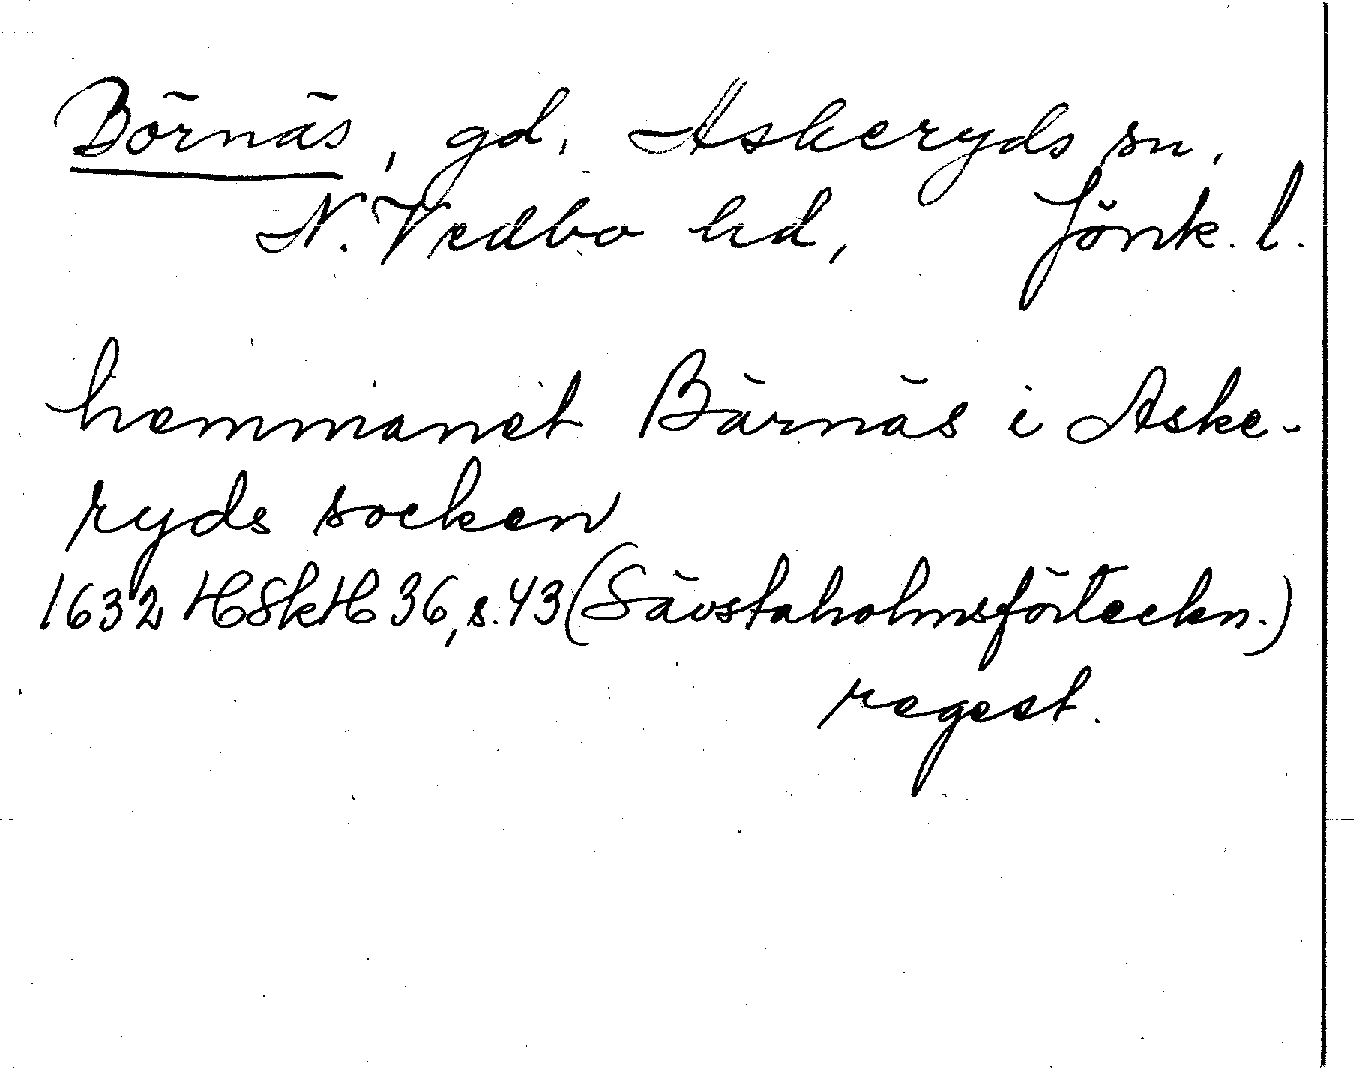 Börnäs, gd, Askeryds sn,
N. Vedbo hd, Jönk. l.
hemmanet Bärnäs i Aske-
ryds socken
1632 HSkH 36, s. 43 (Sävstaholmsförteckn.)
regest.